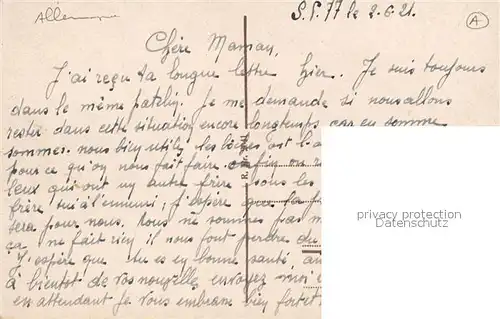 Allemagne
S.P. 77 le 2.6.21.
A
Chère Maman,
J'ai reçu ta longue lettre hier. Je suis toujours
dans le même patelin. Je me demande si nous allons
rester dans cette situation encore longtemps car en somme
sommes nous bien utile, les
pour ce qu'on nous fait faire enfin on
ceux qui ont un autre frère sous les
frère qui s'ennuie, j'espère que
sera pour nous. Nous ne sommes pas
ça ne fait rien il nous font perdre du
J'espère que tu es en bonne santé
à bientôt de vos nouvelles, envoyez moi
en attendant je vous embrasse bien fort
privacy protection
Datenschutz